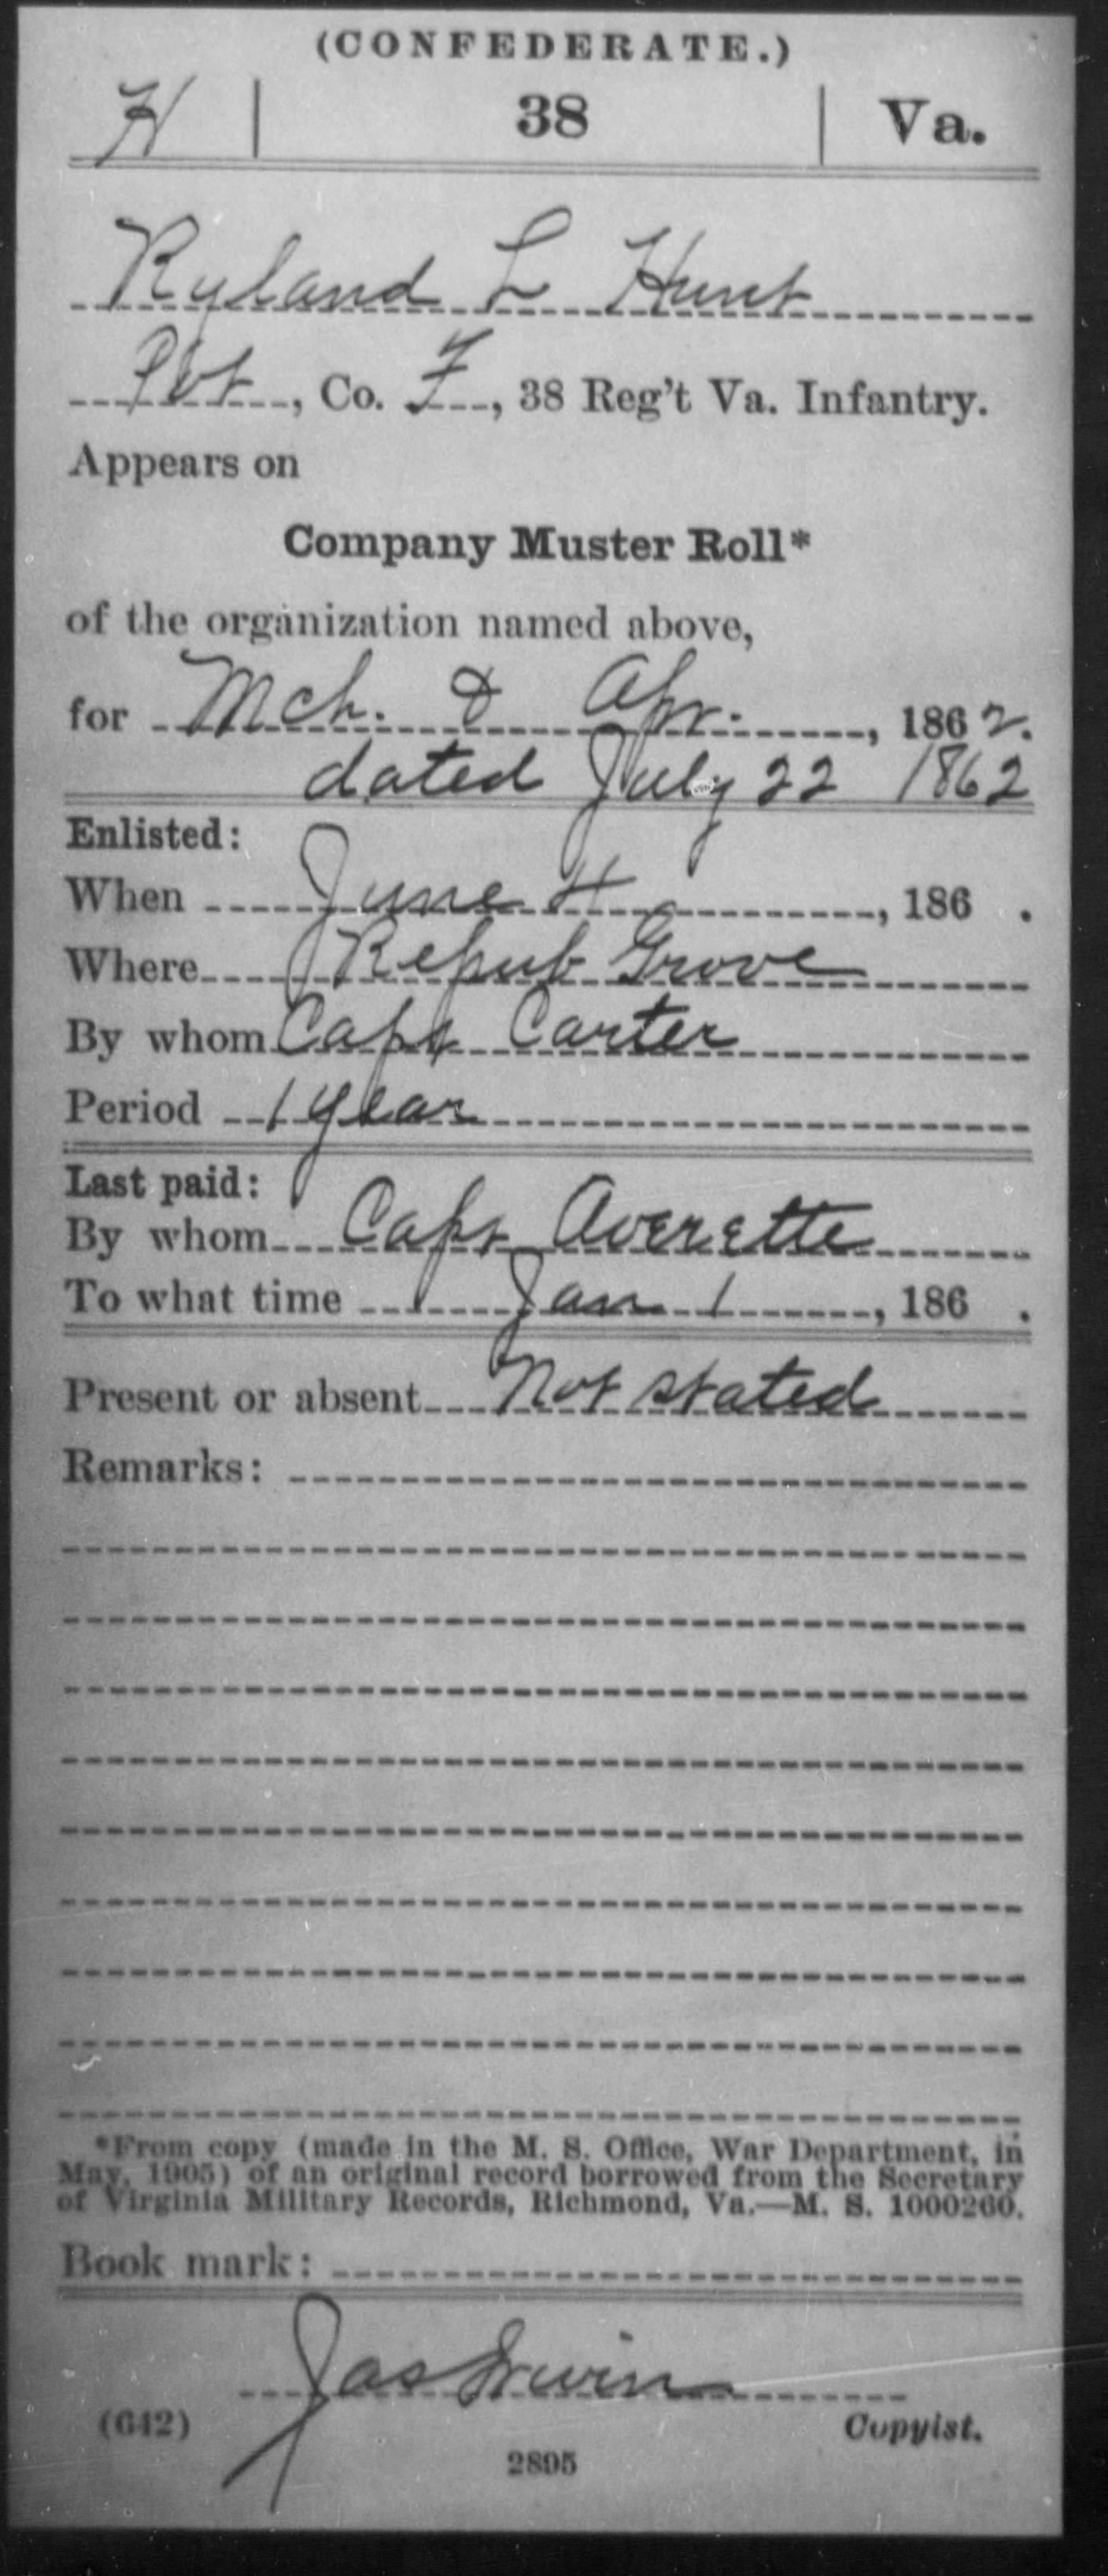 (CONFEDERATE.)
H | 38 | Va.
Ryland L Hunt
Pvt, Co. F, 38 Reg't Va. Infantry.
Appears on
Company Muster Roll*
of the organization named above,
for Mch. & Apr., 1862.
dated July 22 1862
Enlisted:
When June 4, 186 .
Where Repub Grove
By whom Capt Carter
Period 1 year
Last paid:
By whom Capt Averette
To what time Jan 1, 186 .
Present or absent Not stated
Remarks:
*From copy (made in the M. S. Office, War Department, in
May, 1905) of an original record borrowed from the Secretary
of Virginia Military Records, Richmond, Va.—M. S. 1000260.
Book mark:
Jas Irwin
(642) Copyist.
2895